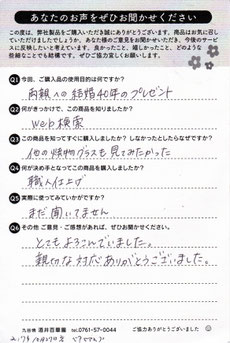 あなたのお声をぜひお聞かせください
この度は、弊社製品をご購入いただき誠にありがとうございます。商品はお気に召し
ていただけましたでしょうか。あなた様のご意見をお聞かせいただき、今後のサービ
スに反映したいと考えています。良かったこと、嬉しかったこと、どのような
些細なことでも結構です。ぜひご協力宜しくお願いします。
Q1 今回、ご購入品の使用目的は何ですか？
両親への結婚40年のプレゼント
Q2 何がきっかけで、この商品を知りましたか？
Web検索
Q3 この商品を知ってすぐに購入しましたか？しなかったとしたらなぜですか？
他の焼物グラスも見てみたかった
Q4 何が決め手となってこの商品を購入しましたか？
職人仕上げ
Q5 実際に使ってみていかがですか？
まだ聞いてません
Q6 その他 ご意見・ご感想があれば、ぜひお聞かせください。
とてもよろこんでいました。
親切な対応ありがとうございました。
九谷焼 酒井百華園 tel.0761-57-0044
ご協力ありがとうございました